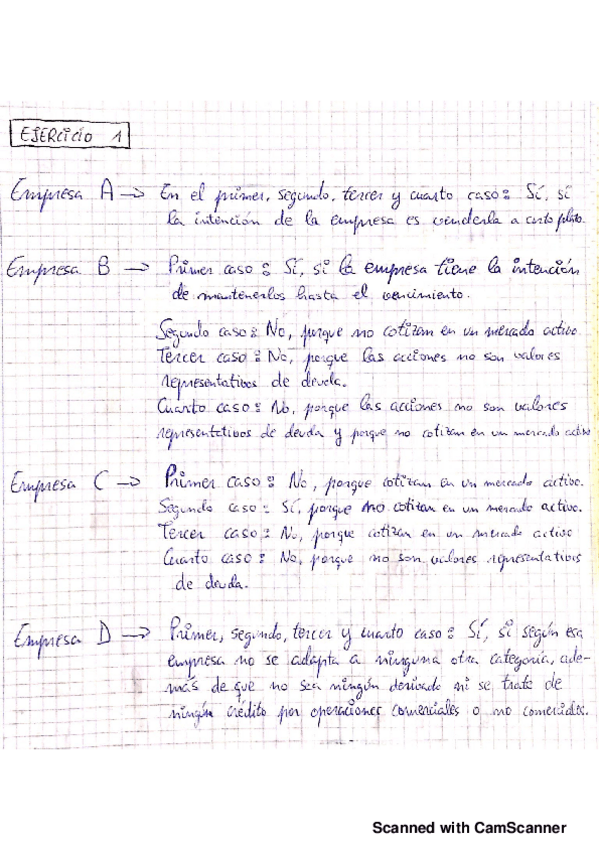 EJERCICIO 1
Empresa A → En el primer, segundo, tercer y cuarto caso: Sí, si
la intención de la empresa es venderla a corto plazo.
Empresa B → Primer caso: Sí, si la empresa tiene la intención
de mantenerlos hasta el vencimiento.
Segundo caso: No, porque no cotizan en un mercado activo.
Tercer caso: No, porque las acciones no son valores
representativos de deuda.
Cuarto caso: No, porque las acciones no son valores
representativos de deuda y porque no cotizan en un mercado activo
Empresa C → Primer caso: No, porque cotizan en un mercado activo.
Segundo caso: Sí, porque no cotizan en un mercado activo.
Tercer caso: No, porque cotizan en un mercado activo
Cuarto caso: No, porque no son valores representativos
de deuda.
Empresa D → Primer, segundo, tercer y cuarto caso: Sí, si según esa
empresa no se adapta a ninguna otra categoría, ade-
más de que no sea ningún derivado ni se trate de
ningún crédito por operaciones comerciales o no comerciales.
Scanned with CamScanner